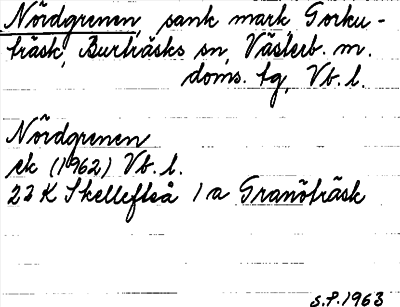 Nördgrenen, sank mark Gorku-
träsk, Burträsks sn, Västerb. m.
doms. tg, Vb. l.
Nördgrenen
ek (1962) Vb. l.
23 K Skellefteå 1 a Granöträsk
S.P. 1963